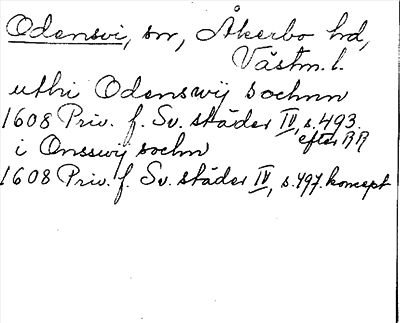 Odensvi, sn, Åkerbo hd,
Västm. l.
uthi Odenswij sochnn
1608 Priv. f. Sv. städer IV, s. 493.
efter RR
i Onsswij sochn
1608 Priv. f. Sv. städer IV, s. 497. koncept